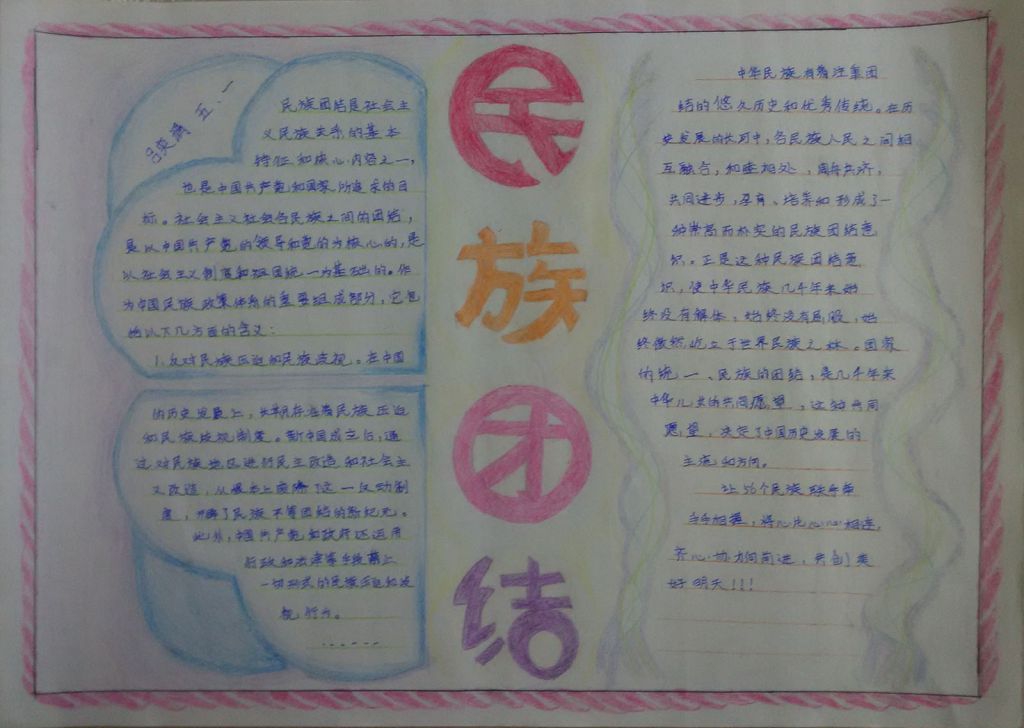 五、一
民族团结是社会主
义民族关系的基本
特征和核心内容之一,
也是中国共产党和国家所追求的目
标。社会主义社会各民族之间的团结,
是以中国共产党的领导和党的为核心的,是
以社会主义制度和祖国统一为基础的。作
为中国民族政策体系的重要组成部分,它包
括以下几方面的含义:
1.反对民族压迫和民族歧视。在中国
的历史发展上,长期存在着民族压迫
和民族歧视制度。新中国成立后,通
过对民族地区进行民主改造和社会主
义改造,从根本上废除了这一反动制
度,开辟了民族平等团结的新纪元。
此外,中国共产党和政府还运用
行政和法律等手段禁止
一切形式的民族压迫和歧
视行为。
......
民
族
团
结
中华民族有着注重团
结的悠久历史和优秀传统。在历
史发展的长河中,各民族人民之间相
互融合,和睦相处,周舟共济,
共同进步,孕育、培养和形成了一
种崇高而朴实的民族团结意
识。正是这种民族团结意
识,使中华民族几千年来始
终没有解体,始终没有屈服,始
终傲然屹立于世界民族之林。国家
的统一、民族的团结,是几千年来
中华儿女的共同愿望,这种共同
愿望,决定了中国历史发展的
主流和方向。
让56个民族联手荣
手手相握,将心比心心相连,
齐心协力向前进,共创美
好明天!!!